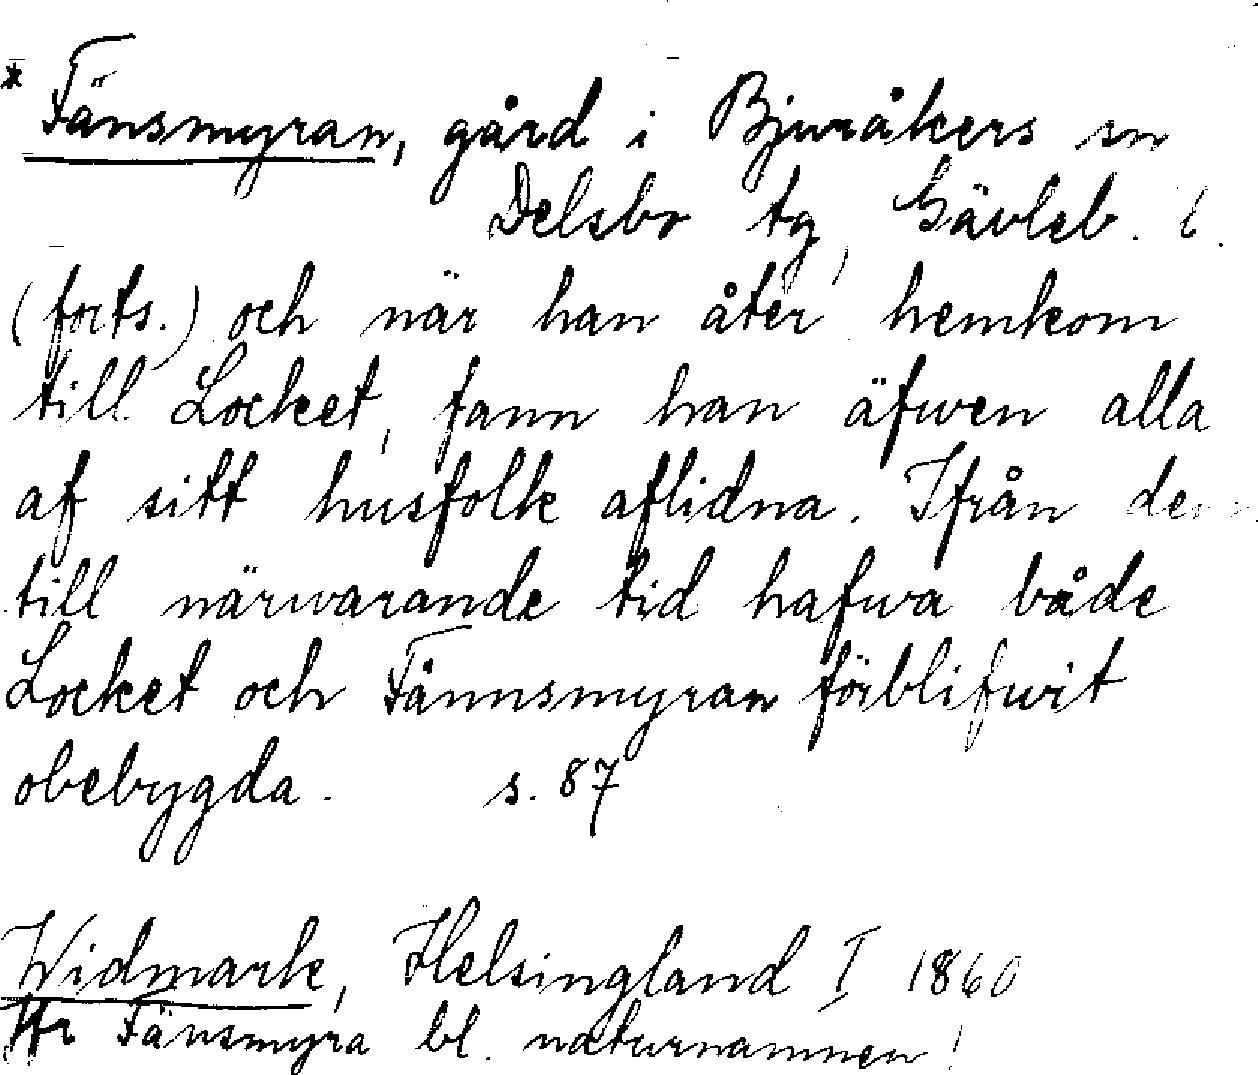 * Fänsmyran, gård i Bjuråkers sn
Delsbo tg, Gävleb. l.
(forts.) och när han åter hemkom
till Locket, fann han äfwen alla
af sitt husfolk aflidna. Ifrån den
till närwarande tid hafwa både
Locket och Fännsmyran förblifwit
obebygda. s. 87
Widmark, Helsingland I 1860
Jfr Fänsmyra bl. naturnamnen!